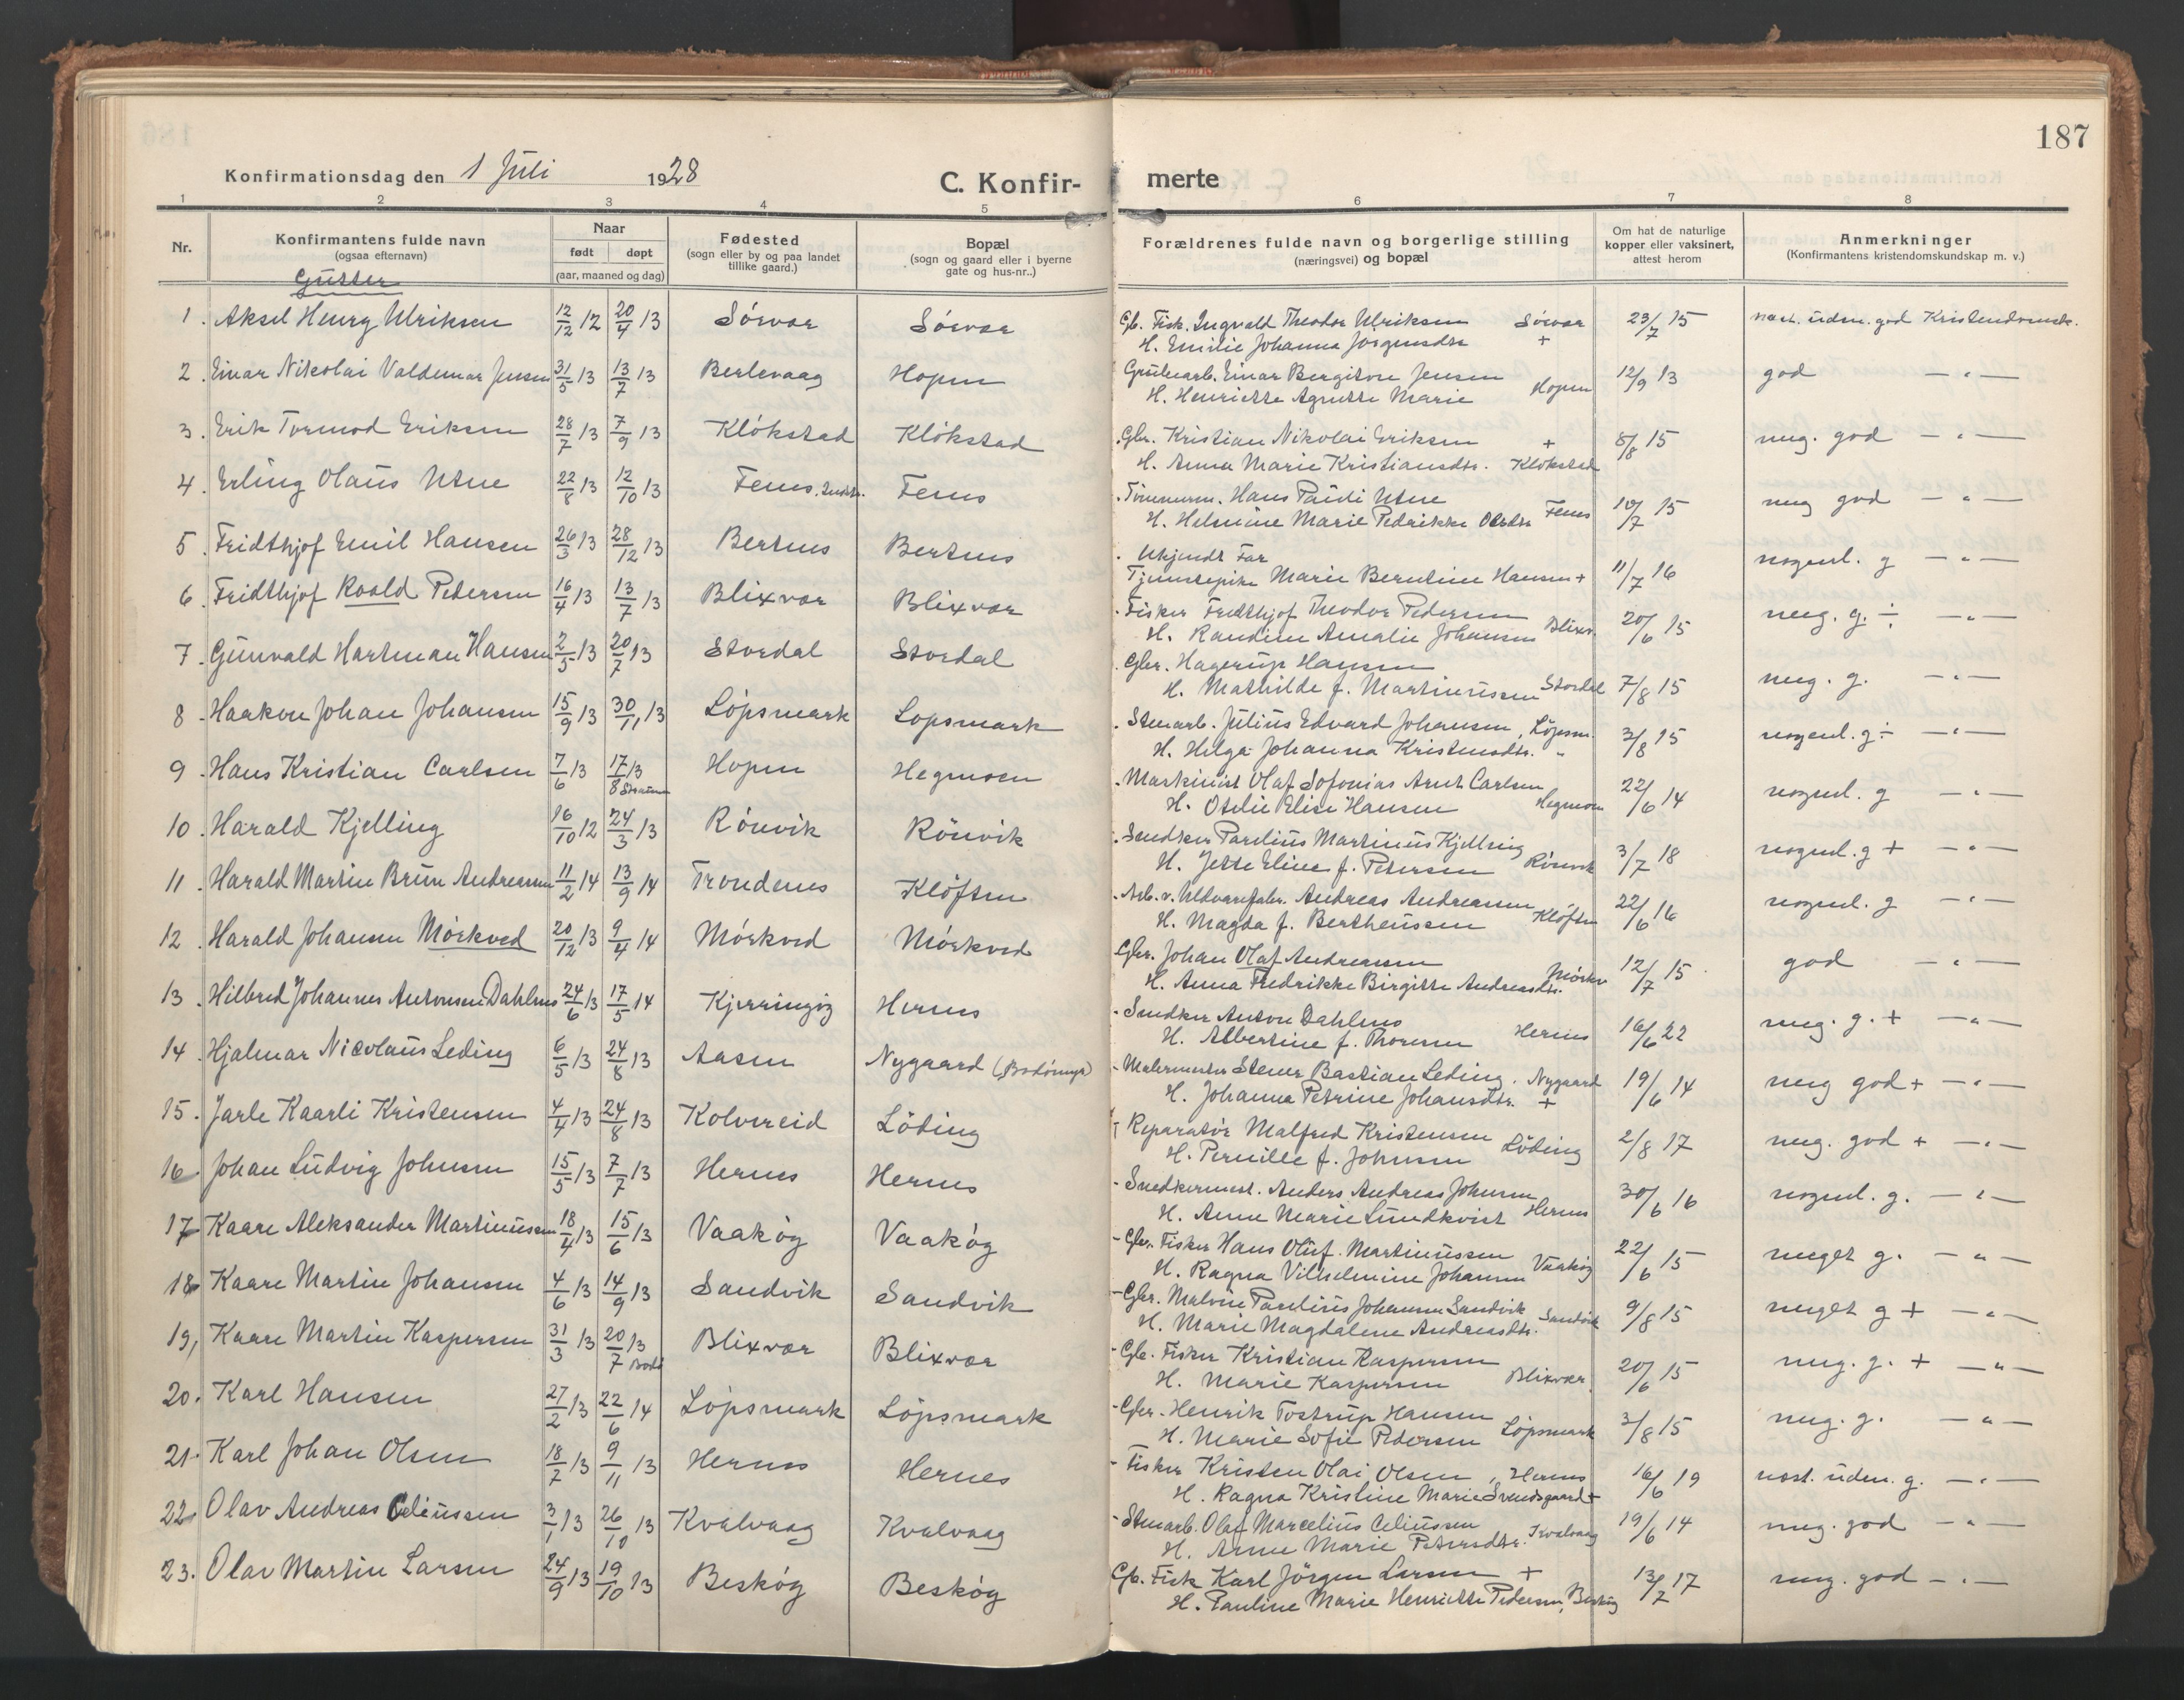 187
Konfirmationsdag den 1 Juli 1928
C. Konfir- merte
1 2 3 4 5 6 7 8
Nr.
Konfirmantens fulde navn
(ogsaa efternavn)
Naar
født døpt
(aar, maaned og dag)
Fødested
(sogn eller by og paa landet
tillike gaard.)
Bopæl
(sogn og gaard eller i byerne
gate og hus-nr..)
Forældrenes fulde navn og borgerlige stilling
(næringsvei) og bopæl
Om hat de naturlige
kopper eller vaksinert,
attest herom
Anmerkninger
(Konfirmantens kristendomskundskap m. v.)
Gutter
1. Aksel Henry Ulriksen 12/12 12 20/4 13 Sörvær Sörvær Gb. Fisk. Ingvald Theodor Ulriksen Sörvær 23/7 15 næst. udm. god Kristendomsk.
H. Emilie Johanna Jørgensdtr +
2. Einar Nikolai Valdemar Jensen 31/5 13 13/7 13 Berlevaag Hopen Grubearb. Einar Bergiton Jensen 12/9 13 god — " —
H. Henriette Agnethe Marie Hopen
3. Erik Tormod Eriksen 28/7 13 7/9 13 Klökstad Klökstad Gbr. Kristian Nikolai Eriksen + 5/8 15 meg. god — " —
H. Anna Marie Kristiansdtr. Klökstad
4. Erling Olaus Utne 22/8 13 12/10 13 Fenes Fenes Tömmerm. Hans Paudi Utne 10/7 15 meg god — " —
H. Helmine Marie Pedrikke Olsdtr Fenes
5. Fridthjof Emil Hansen 26/3 13 28/12 13 Bertnes Bertnes Ukjendt Far 11/7 16 nogenl. g — " —
Tjenestepike Marie Berntine Hansen +
6. Fridthjof Roald Pedersen 16/4 13 13/7 13 Blixvær Blixvær Fisker Fridthjof Theodor Pedersen 20/6 15 meg. g. ÷ — " —
H. Randine Amalie Johansen Blixv.
7. Gunvald Hartman Hansen 2/5 13 20/7 13 Stordal Stordal Gbr. Hagerup Hansen 7/8 15 meg. g. — " —
H. Mathilde f. Martinussen Stordal
8. Haakon Johan Johansen 15/9 13 30/11 13 Löpsmark Löpsmark Stenarb. Julius Edvard Johansen, Löpsm. 3/8 15 nogenl. g ÷ — " —
H. Helga Johanna Kristensdtr. "
9. Hans Kristian Carlsen 7/6 13 17/8 13 Hopen Hegmoen Maskinist Olaf Sofonias Arnt Carlsen 22/6 14 nogenl. g — " —
H. Otelie Elise Hansen Hegmoen
10. Harald Kjelling 16/10 12 24/3 13 Rönvik Rönvik Snedker Parelius Martinus Kjelling 3/7 18 nogenl. g + — " —
H. Jette Eline f. Petersen Rönvik
11. Harald Martin Brun Andreassen 11/2 14 13/9 14 Trondenes Klöften Arb. v. Uldvarefabr. Andreas Andreassen 22/6 16 nogenl. g — " —
H. Magda f. Bertheussen Klöften
12. Harald Johansen Mörkved 20/12 13 9/4 14 Mörkved Mörkved Gbr. Johan Olaf Andreassen 12/7 15 god — " —
H. Anna Fredrikke Birgitte Andreasdtr. Mörkv
13. Hilbred Johannes Antonsen Dahlnes 24/6 13 17/5 14 Kjerringöy Hernes Snedker Anton Dahlnes 16/6 22 meg. g. + — " —
H. Albertine f. Thoresen Hernes
14. Hjalmar Nicolaus Leding 6/5 13 24/8 13 Aasen Nygaard Malermester Stener Bastian Leding. Nygaard 19/6 14 meg god + — " —
H. Johanna Petrine Johansdtr. +
15. Jarle Kaarli Kristensen 4/4 13 24/8 13 Kolvereid Löding Reparatör Malfred Kristensen 2/8 17 meg. god + — " —
H. Pernille f. Johnsen Löding
16 Johan Ludvig Johnsen 15/5 13 7/7 13 Hernes Hernes Snedkermest. Anders Andreas Johnsen 30/6 16 nogenl. g. — " —
H. Anne Marie Lundkvist Hernes
17 Kaare Aleksander Martinussen 18/4 13 15/6 13 Vaaköy Vaaköy Gbr. Fisker Hans Oluf Martinussen 22/6 15 meget g. — " —
H. Ragna Vilhelmine Johansen Vaaköy
18 Kaare Martin Johansen 4/6 13 14/9 13 Sandvik Sandvik Gbr. Malvin Parelius Johansen Sandvik 9/8 15 meget g + — " —
H. Marie Magdalene Andreasdtr. Sandvik
19, Kaare Martin Kaspersen 31/3 13 20/7 13 Bodö Blixvær Blixvær Gbr. Fisker Kristian Kaspersen 20/6 15 meg. g. + — " —
H. Marie Kaspersen Blixvær
20. Karl Hansen 27/2 13 22/6 14 Löpsmark Löpsmark Gbr. Henrik Tostrup Hansen 3/8 15 meg. g. — " —
H. Marie Sofie Pedersen Löpsmark
21. Karl Johan Olsen 18/7 13 9/11 13 Hernes Hernes Fisker Kristen Olai Olsen, Hernes 16/6 19 næst. udm. g. — " —
H. Ragna Kristine Marie Svendsgaard +
22. Olav Andreas Celiussen 3/1 13 26/10 13 Kvalvaag Kvalvaag Stenarb. Olaf Marcelius Celiussen 19/6 14 meg. god — " —
H. Anne Marie Petersdtr. Kvalvaag
23. Olav Martin Larsen 24/9 13 19/10 13 Besköy Besköy Gb. Fisk Karl Jörgen Larsen + 13/7 17 meg. god — " —
H. Pauline Marie Henriette Pedersen, Besköy